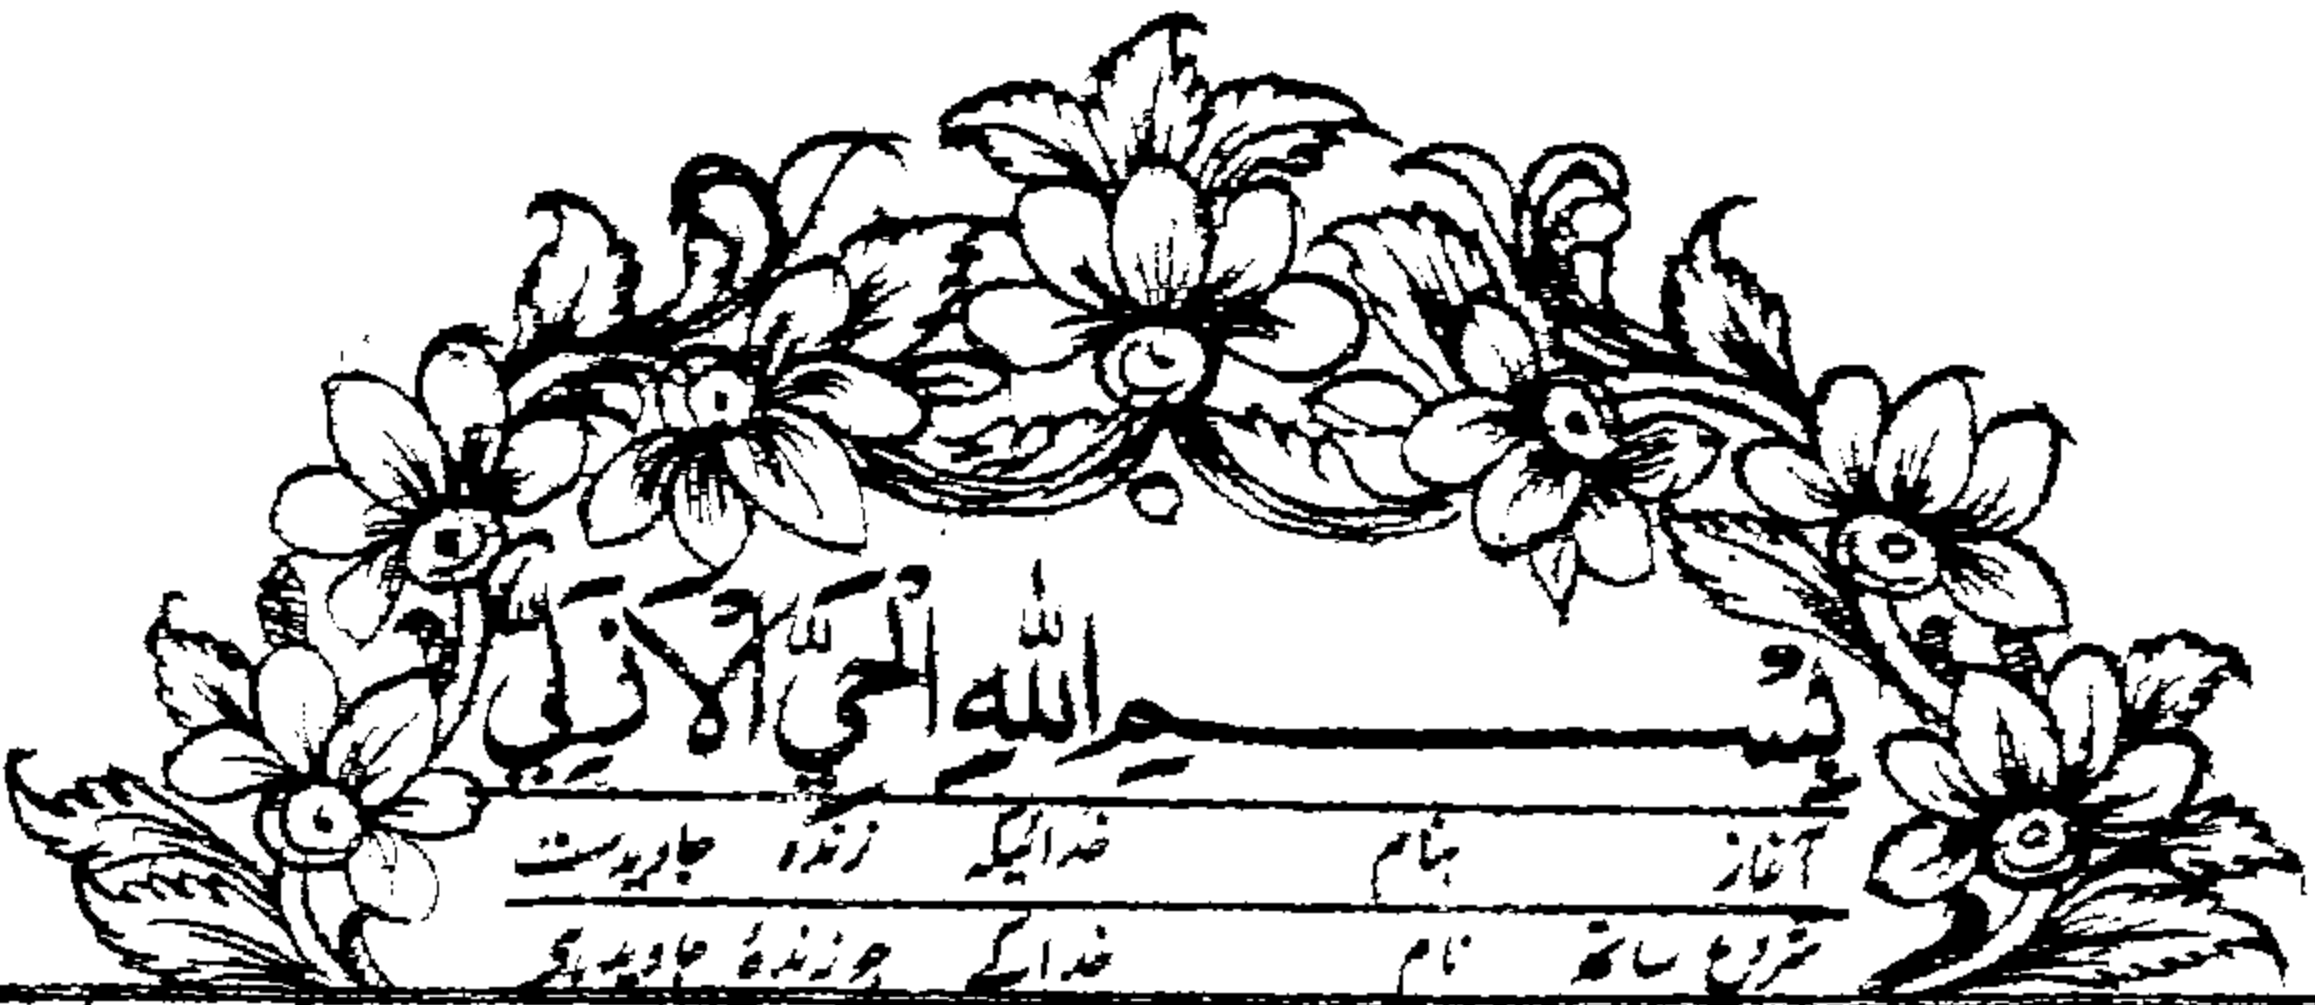 بِسْمِ اللهِ الْحَيِّ الْاَزَلِيِّ
آغاز بنام خدائیکہ زندہ جاویدست
شروع ساتھ نام خدا کے جو زندۂ جاوید ہی